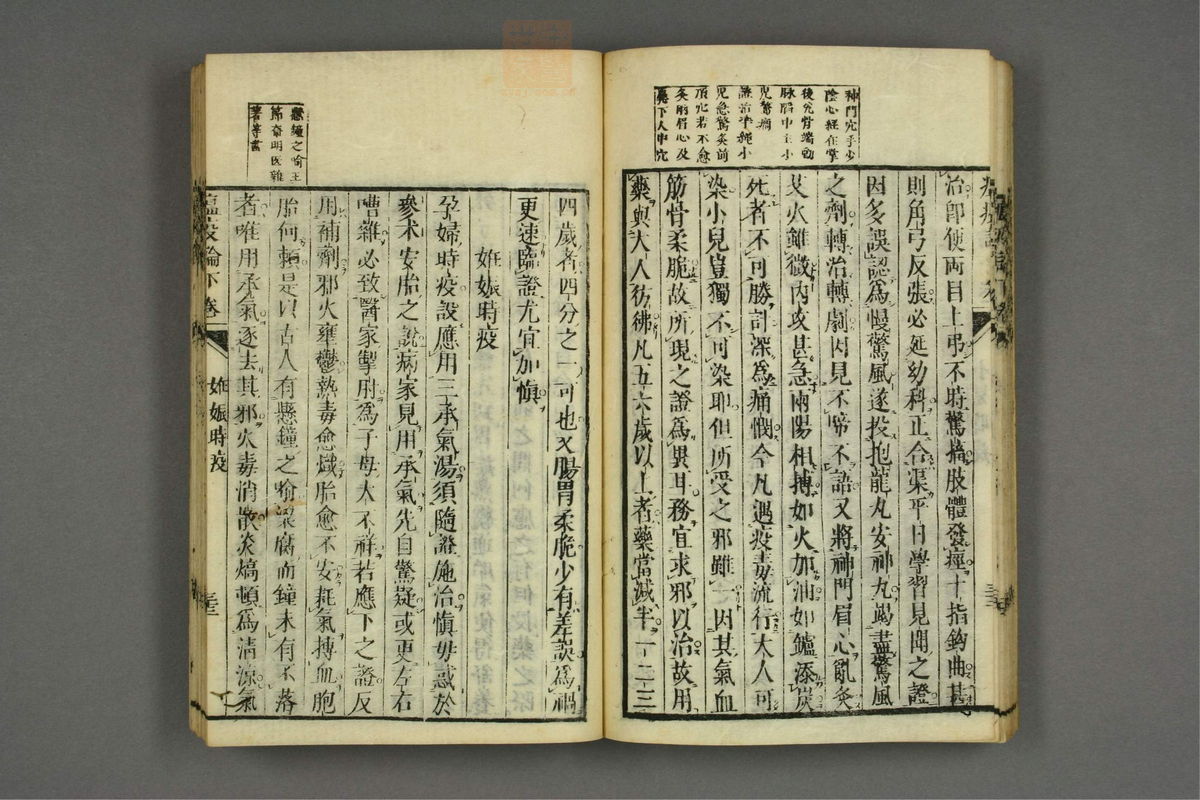 神門穴手少
陰心經在掌
後兌骨端動
脉陷中主小
兒驚癎
治即便両目上弔不時驚搐肢體發痙十指鈎曲甚
則角弓反張必延幼科正合渠平日學習見聞之證
因多誤認為慢驚風遂投抱龍丸安神丸竭盡驚風
之劑轉治轉劇因見不啼不語又將神門眉心亂灸
艾火雖微內攻甚急兩陽相搏如火加油如鑪添炭
死者不可勝計深為痛憫今凡遇疫毒流行大人可
染小兒豈獨不可染耶但所受之邪雖一因其氣血
筋骨柔脆故所現之證為異耳務宜求邪以治故用
藥與大人彷彿凡五六歲以上者藥當減半一二三
四歲者四分之一可也又腸胃柔脆少有差誤為禍
更速臨證尤宜加慎
妊娠時疫
孕婦時疫設應用三承氣湯須隨證施治慎毋惑於
參朮安胎之說病家見用承氣先自驚疑或更左右
嘈雜必致醫家掣肘為子母大不祥若應下之證反
用補劑邪火壅鬱熱毒愈熾胎愈不安耗氣搏血胞
胎何頼是以古人有懸鐘之喻梁腐而鐘未有不落
者唯用承氣逐去其邪火毒消散炎熇頓為清凉氣
懸鐘之喻王
節齋明医雜
著等書
温疫論下卷
妊娠時疫